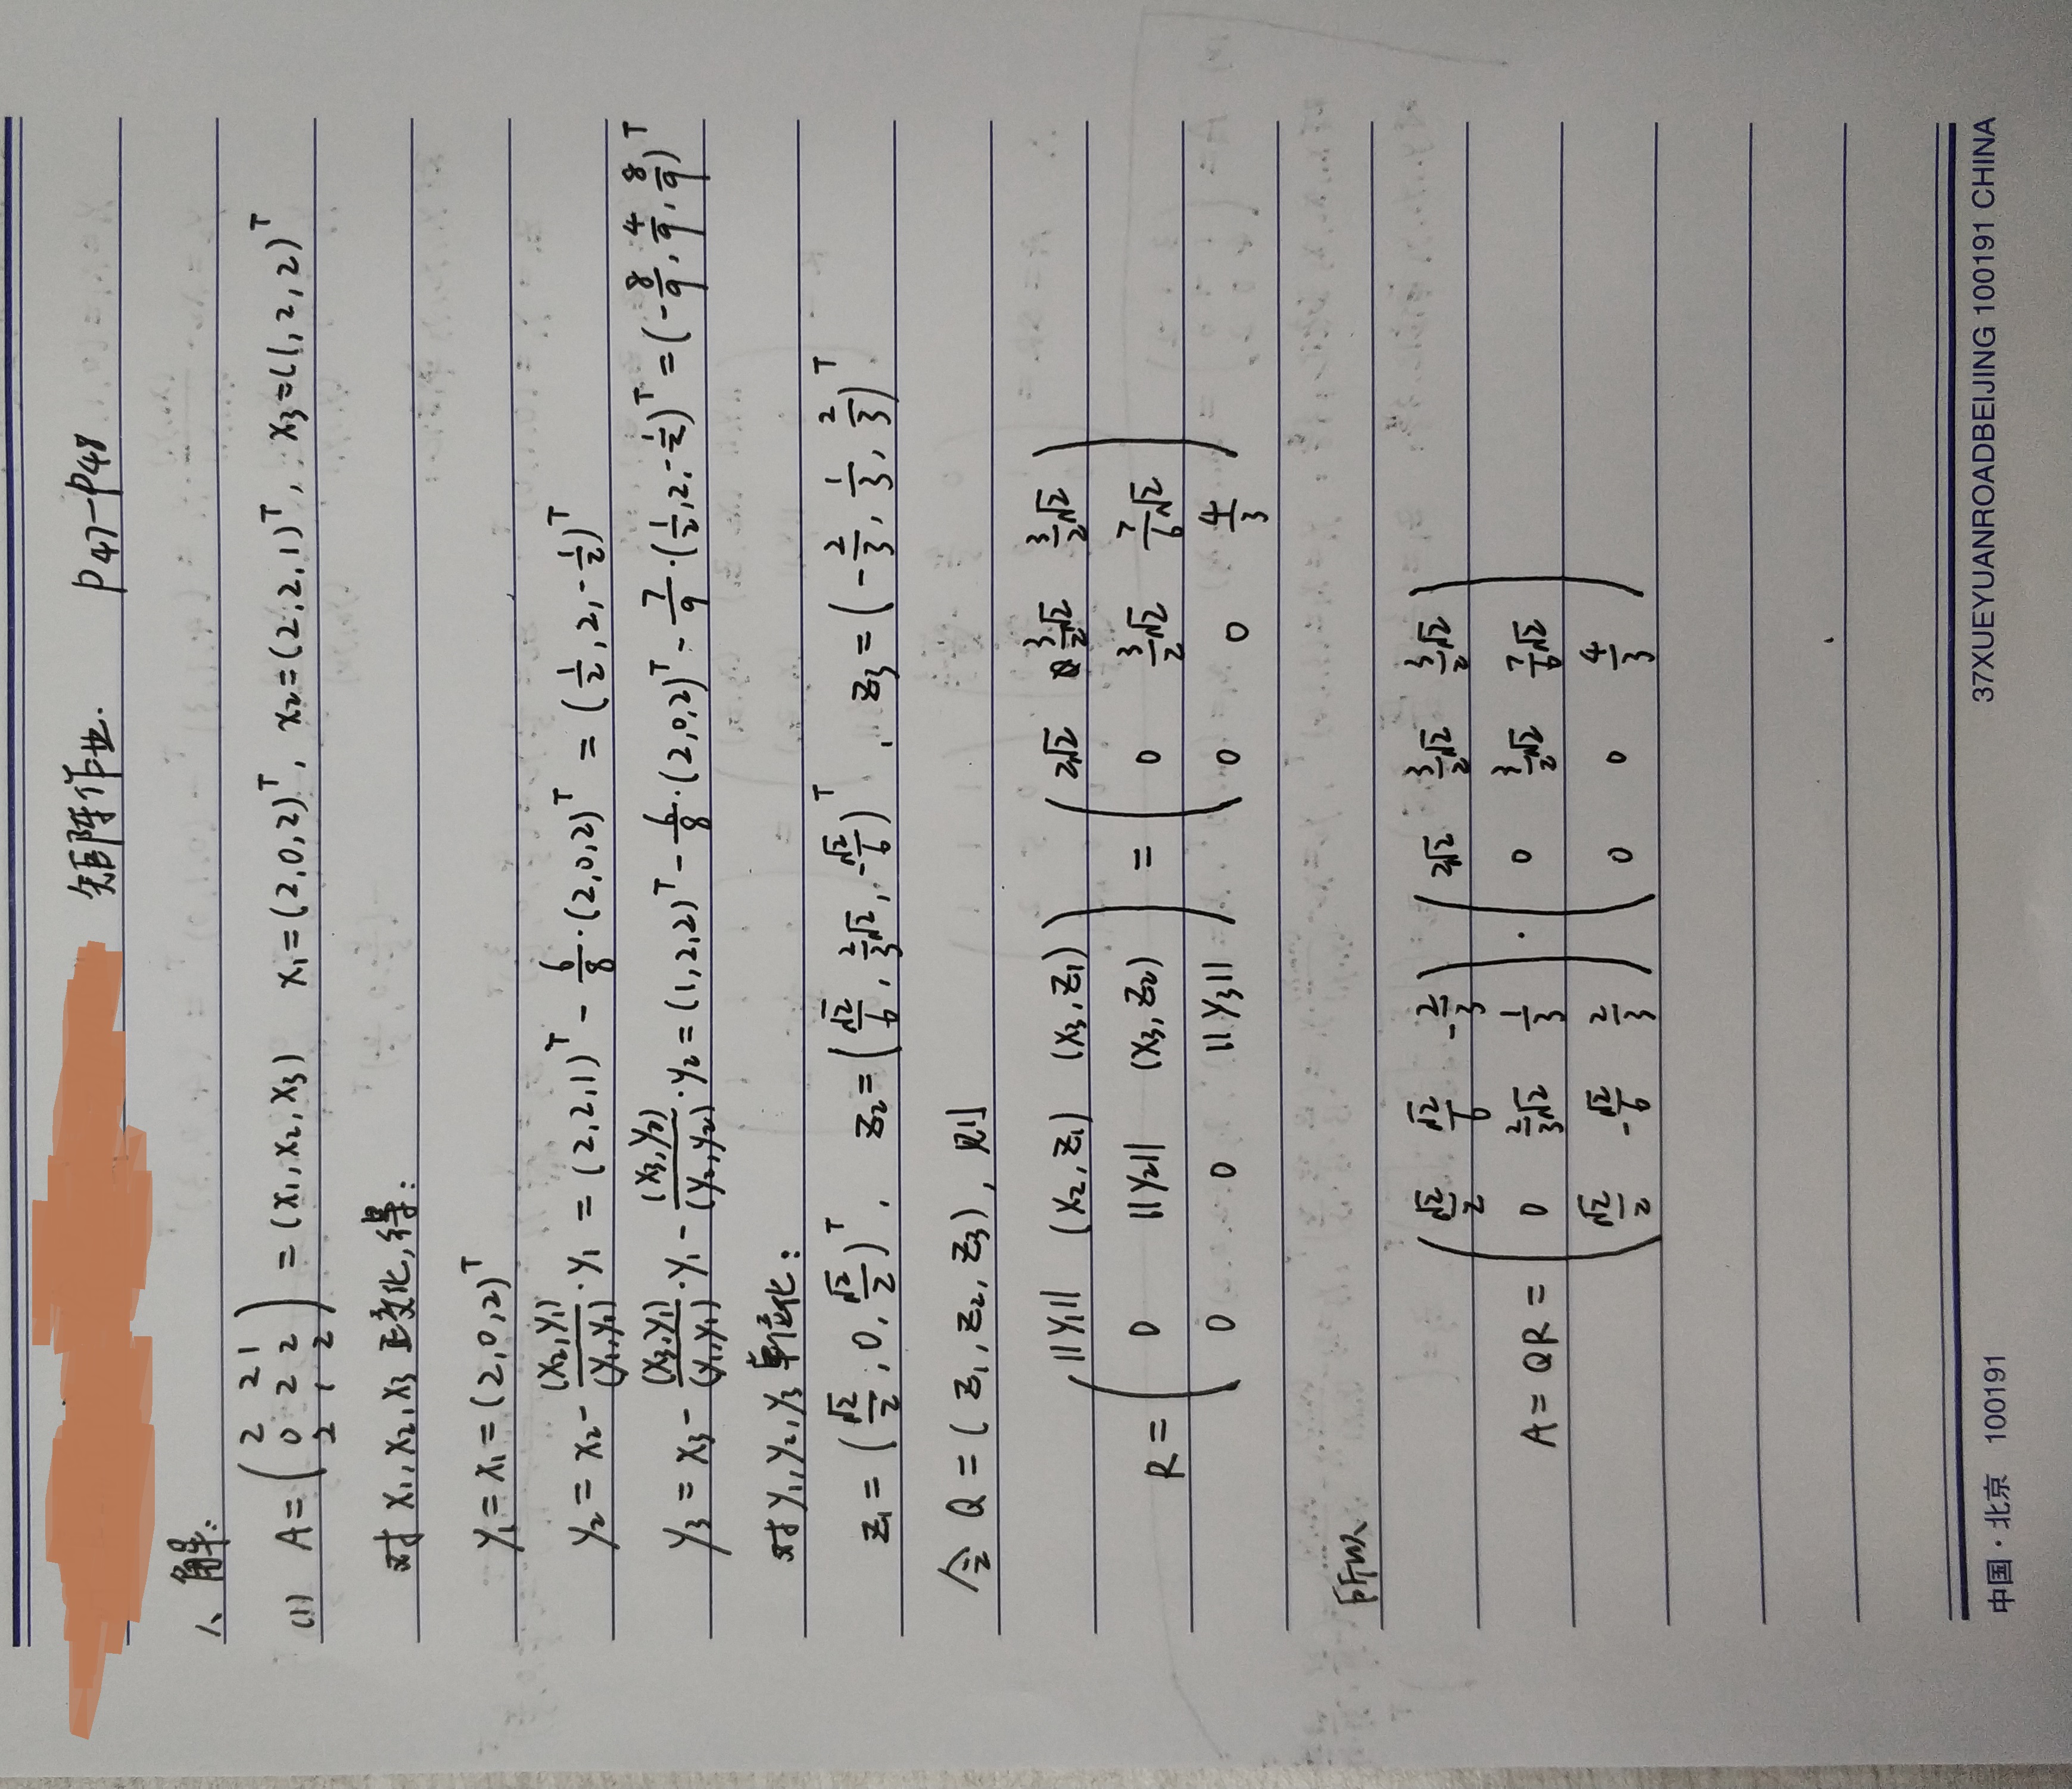 矩阵作业. P47-P48
1、解:
(1) A = ( 2 2 1 ; 0 2 2 ; 2 1 2 ) = (x₁, x₂, x₃) x₁ = (2,0,2)ᵀ, x₂ = (2,2,1)ᵀ, x₃ = (1,2,2)ᵀ
对 x₁, x₂, x₃ 正交化,得:
y₁ = x₁ = (2,0,2)ᵀ
y₂ = x₂ - (x₂,y₁)/(y₁,y₁) · y₁ = (2,2,1)ᵀ - 6/8 · (2,0,2)ᵀ = (1/2, 2, -1/2)ᵀ
y₃ = x₃ - (x₃,y₁)/(y₁,y₁) · y₁ - (x₃,y₂)/(y₂,y₂) · y₂ = (1,2,2)ᵀ - 6/8 · (2,0,2)ᵀ - 7/9 · (1/2, 2, -1/2)ᵀ = (-8/9, 4/9, 8/9)ᵀ
对 y₁, y₂, y₃ 单位化:
z₁ = (√2/2, 0, √2/2)ᵀ, z₂ = (√2/6, 2/3√2, -√2/6)ᵀ, z₃ = (-2/3, 1/3, 2/3)ᵀ
令 Q = (z₁, z₂, z₃), 则
||y₁|| (x₂,z₁) (x₃,z₁) 2√2 3/2√2 3/2√2
R = 0 ||y₂|| (x₃,z₂) = 0 3/2√2 7/6√2
0 0 ||y₃|| 0 0 4/3
所以
√2/2 √2/6 -2/3 2√2 3/2√2 3/2√2
A = QR = 0 2/3√2 1/3 · 0 3/2√2 7/6√2
√2/2 -√2/6 2/3 0 0 4/3
中国·北京 100191 37XUEYUANROADBEIJING 100191 CHINA